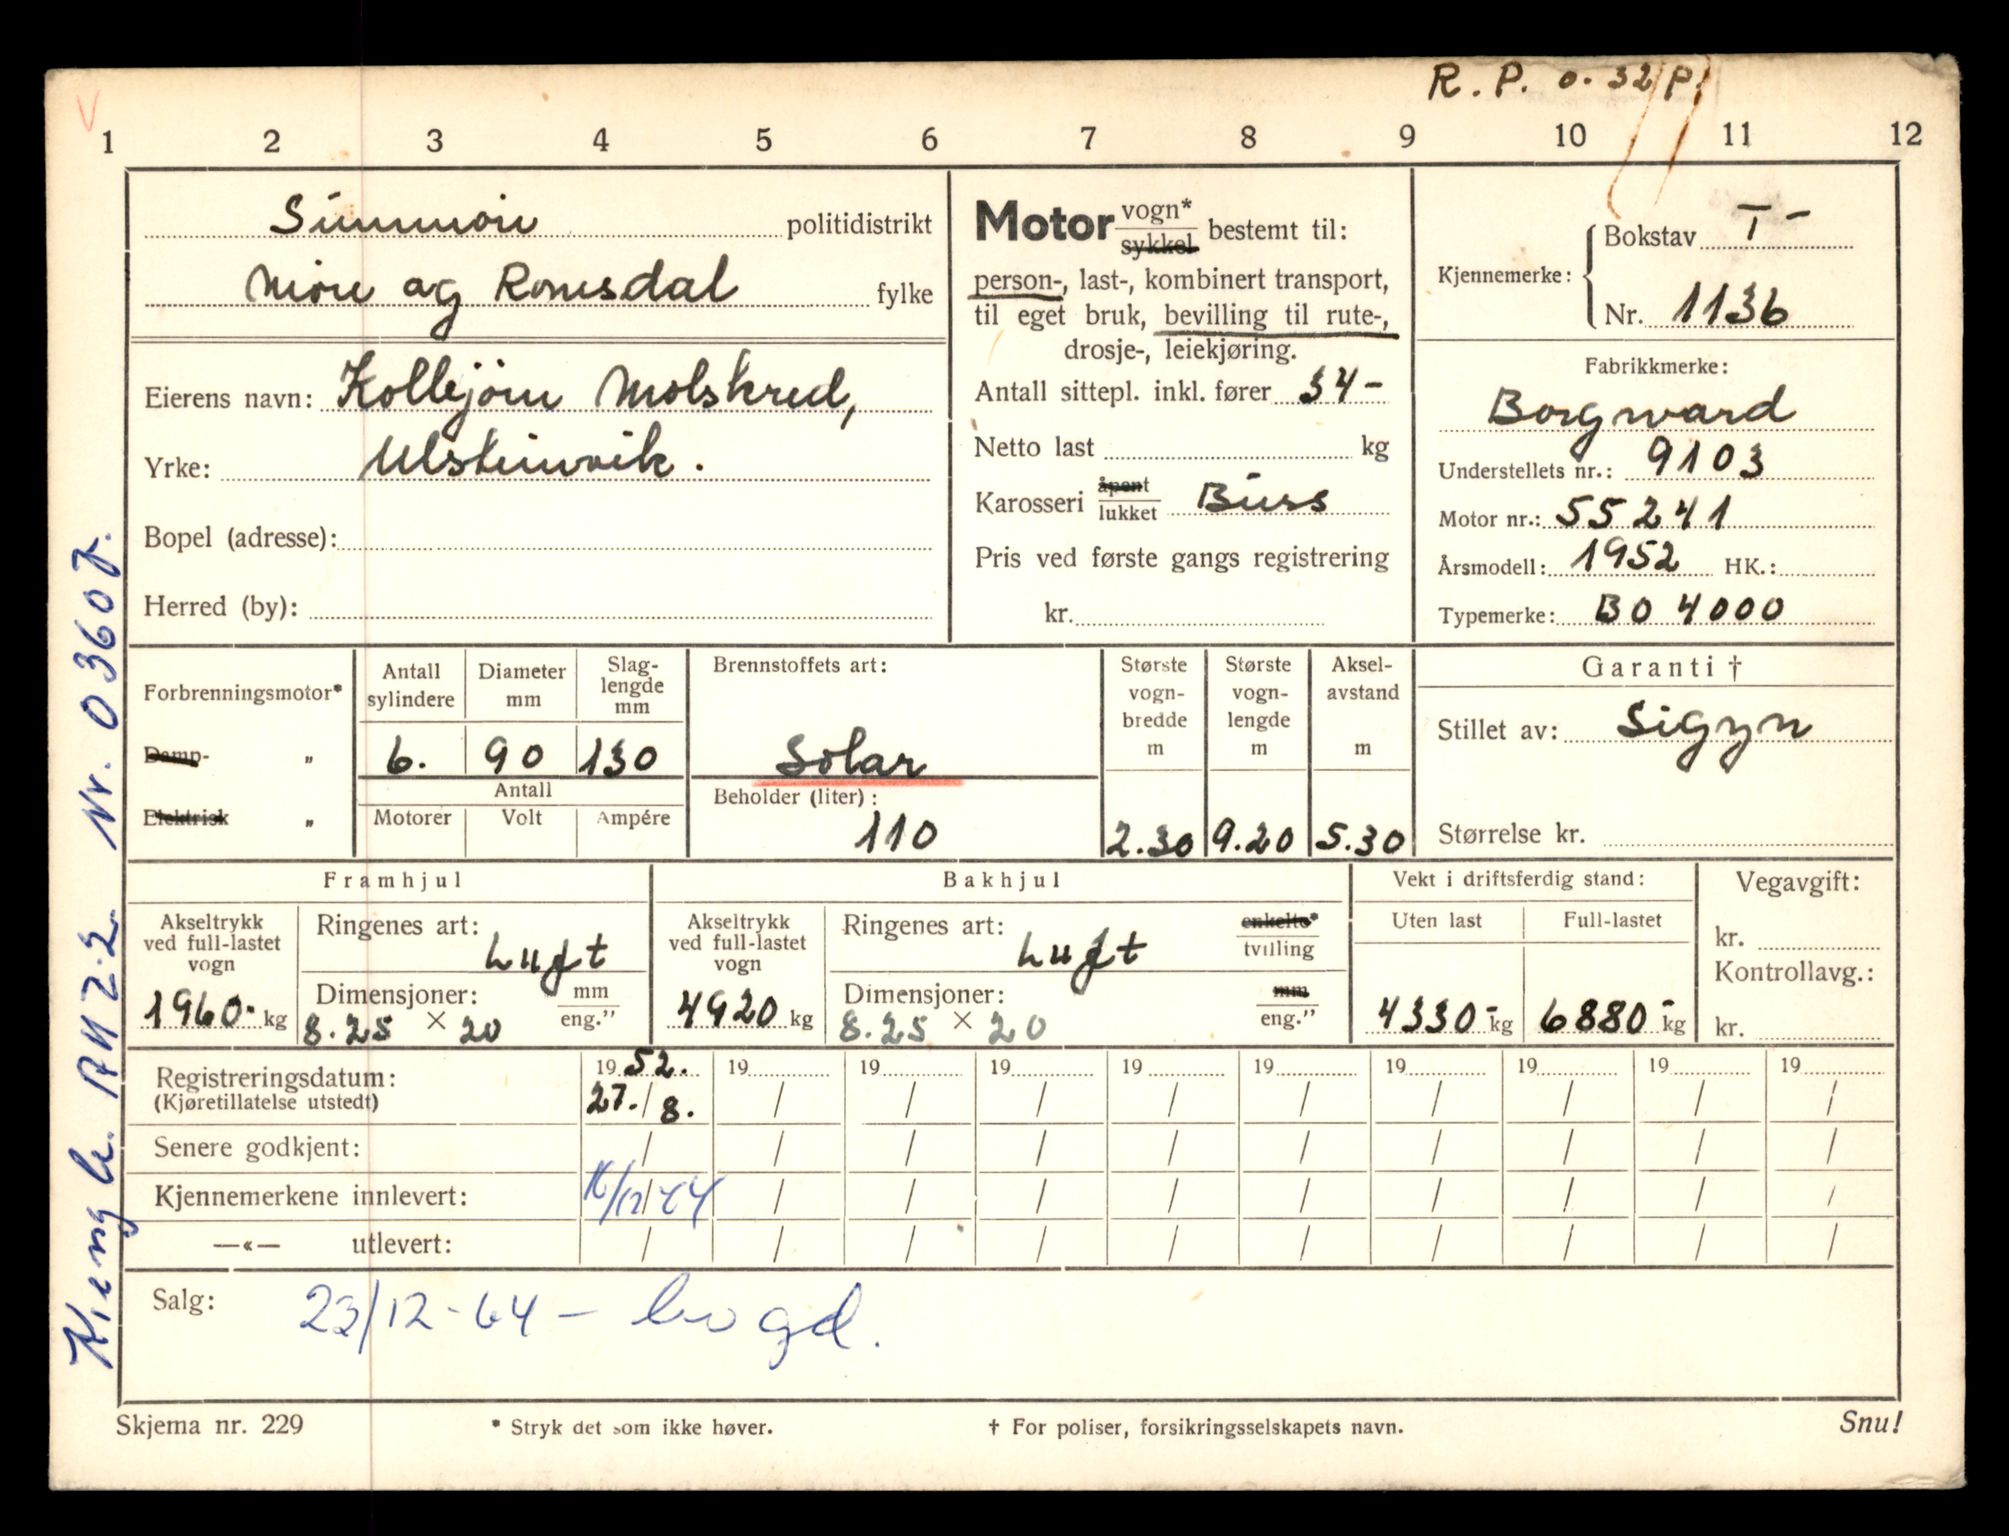 R. P. o. 32/P.
1 2 3 4 5 6 7 8 9 10 11 12
Sunnmøre politidistrikt
Møre og Romsdal fylke
Eierens navn: Kollbjørn Molskred,
Yrke: Ulsteinvik.
Bopel (adresse):
Herred (by):
Motor vogn* sykkel bestemt til:
person-, last-, kombinert transport,
til eget bruk, bevilling til rute-,
drosje-, leiekjøring.
Antall sittepl. inkl. fører 34-
Netto last kg
Karosseri åpent lukket Buss
Pris ved første gangs registrering
kr.
Kjennemerke: Bokstav T-
Nr. 1136
Fabrikkmerke:
Borgward
Understellets nr.: 9103
Motor nr.: 55241
Årsmodell: 1952 HK.:
Typemerke: BO 4000
Forbrenningsmotor*
Damp- "
Elektrisk "
Antall sylindere
Diameter mm
Slag-lengde mm
6. 90 130
Antall
Motorer Volt Ampére
Brennstoffets art:
Solar
Beholder (liter):
110
Største vogn-bredde m
2.30
Største vogn-lengde m
9.20
Aksel-avstand m
5.30
Garanti †
Stillet av: Sigyn
Størrelse kr.
Framhjul
Akseltrykk ved full-lastet vogn
1960.- kg
Ringenes art:
Luft
Dimensjoner: mm eng."
8.25 × 20
Bakhjul
Akseltrykk ved full-lastet vogn
4920 kg
Ringenes art: enkelte* tvilling
Luft
Dimensjoner: mm eng."
8.25 × 20
Vekt i driftsferdig stand:
Uten last Full-lastet
4330- kg 6880- kg
Vegavgift:
kr.
Kontrollavg.:
kr.
Registreringsdatum: 1952. 19 19 19 19 19 19 19 19 19
(Kjøretillatelse utstedt) 27./8. / / / / / / / / /
Senere godkjent: / / / / / / / / / /
Kjennemerkene innlevert: /12 64 / / / / / / / / /
—«— utlevert: / / / / / / / / / /
Salg: 23/12-64 -
Skjema nr. 229
* Stryk det som ikke høver.
† For poliser, forsikringsselskapets navn.
Snu!
Nr. 0360